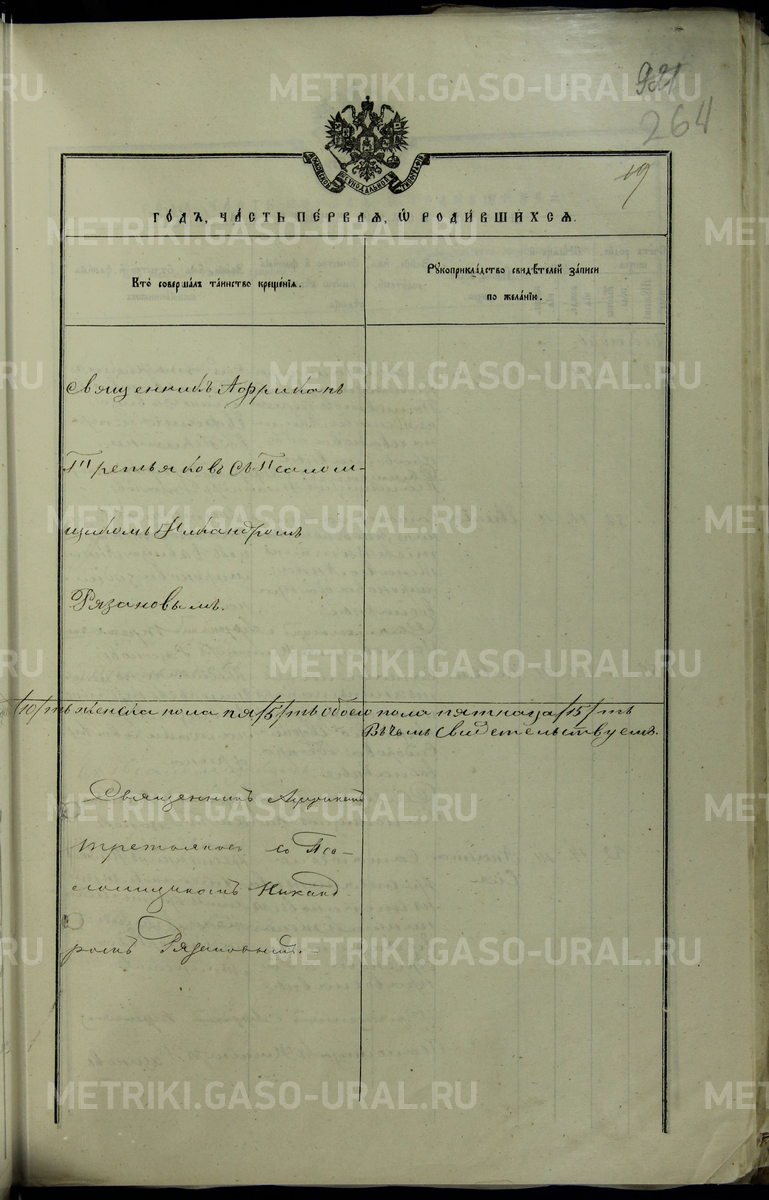 921
264
19
МОСКОВСКОЙ СѴНОДАЛЬНОЙ ТИПОГРАФІИ
ГО́ДЪ, ЧА́СТЬ ПЕ́РВАЯ, Ѡ҆ РОДИ́ВШИХСЯ.
Кто̀ соверша́лъ та́инство креще́нїѧ.
Рꙋкоприкла́дство свидѣ́телей за́писи
по жела́нїю.
Священникъ Африканъ
Третьяковъ съ Псалом-
щикомъ Никандромъ
Рязановымъ.
/10/ть женска пола пя/5/ть обоего пола пятнадца/15/ть
Въ чемъ свидетельствуемъ.
Священникъ Африканъ
Третьяковъ со Пса-
ломщикомъ Никанд
ромъ Рязановымъ.
METRIKI.GASO-URAL.RU